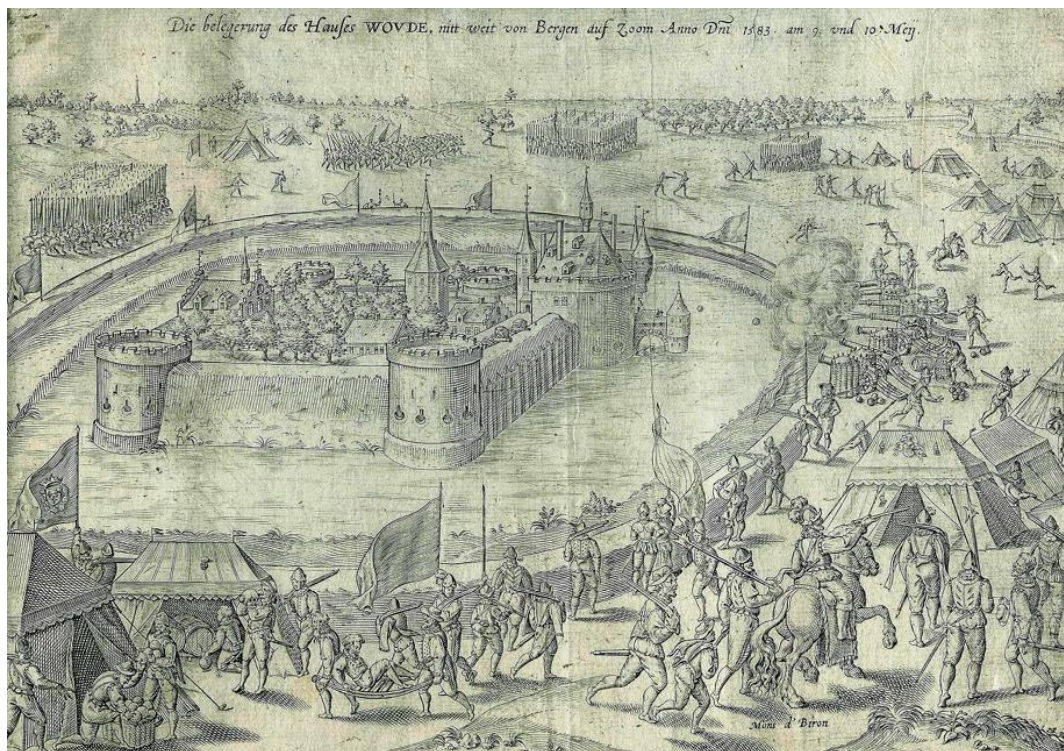 Die belegerung des Hauses WOVDE, nitt weit von Bergen auf Zoom Anno Dñi 1583. am 9. vnd 10. Meij.
Mons d' Biron